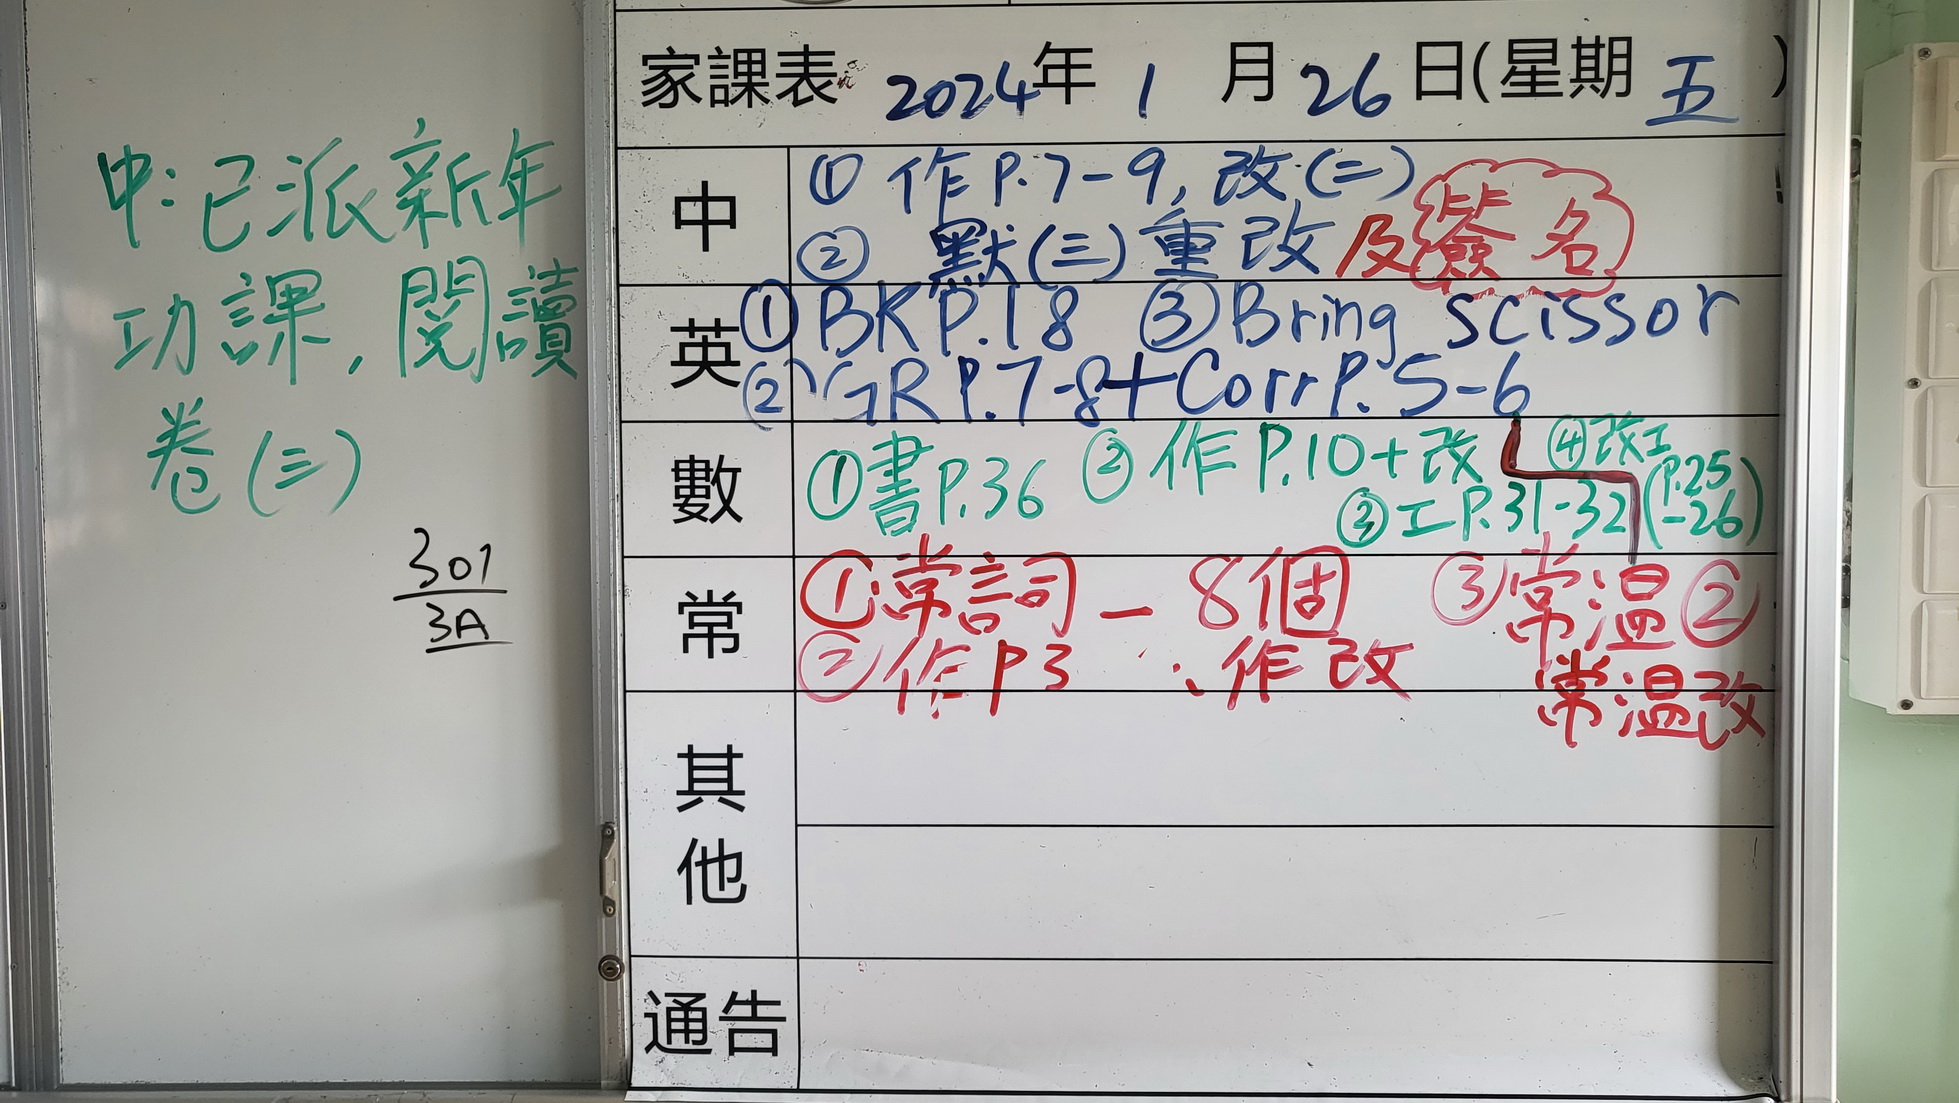 中:已派新年
功課,閱讀
卷(三)
301
3A
家課表 2024年 1 月 26 日(星期 五 )
中
① 作P.7-9, 改(二)
② 默(三)重改及簽名
英
① BK P.18 ③ Bring scissor
② GR P.7-8+Corr P.5-6
數
① 書P.36 ② 作P.10+改 ④改工(P.25-26)
③工P.31-32
常
①常詞 - 8個 ③常溫②
② 作P3 作改 常溫改
其他
通告